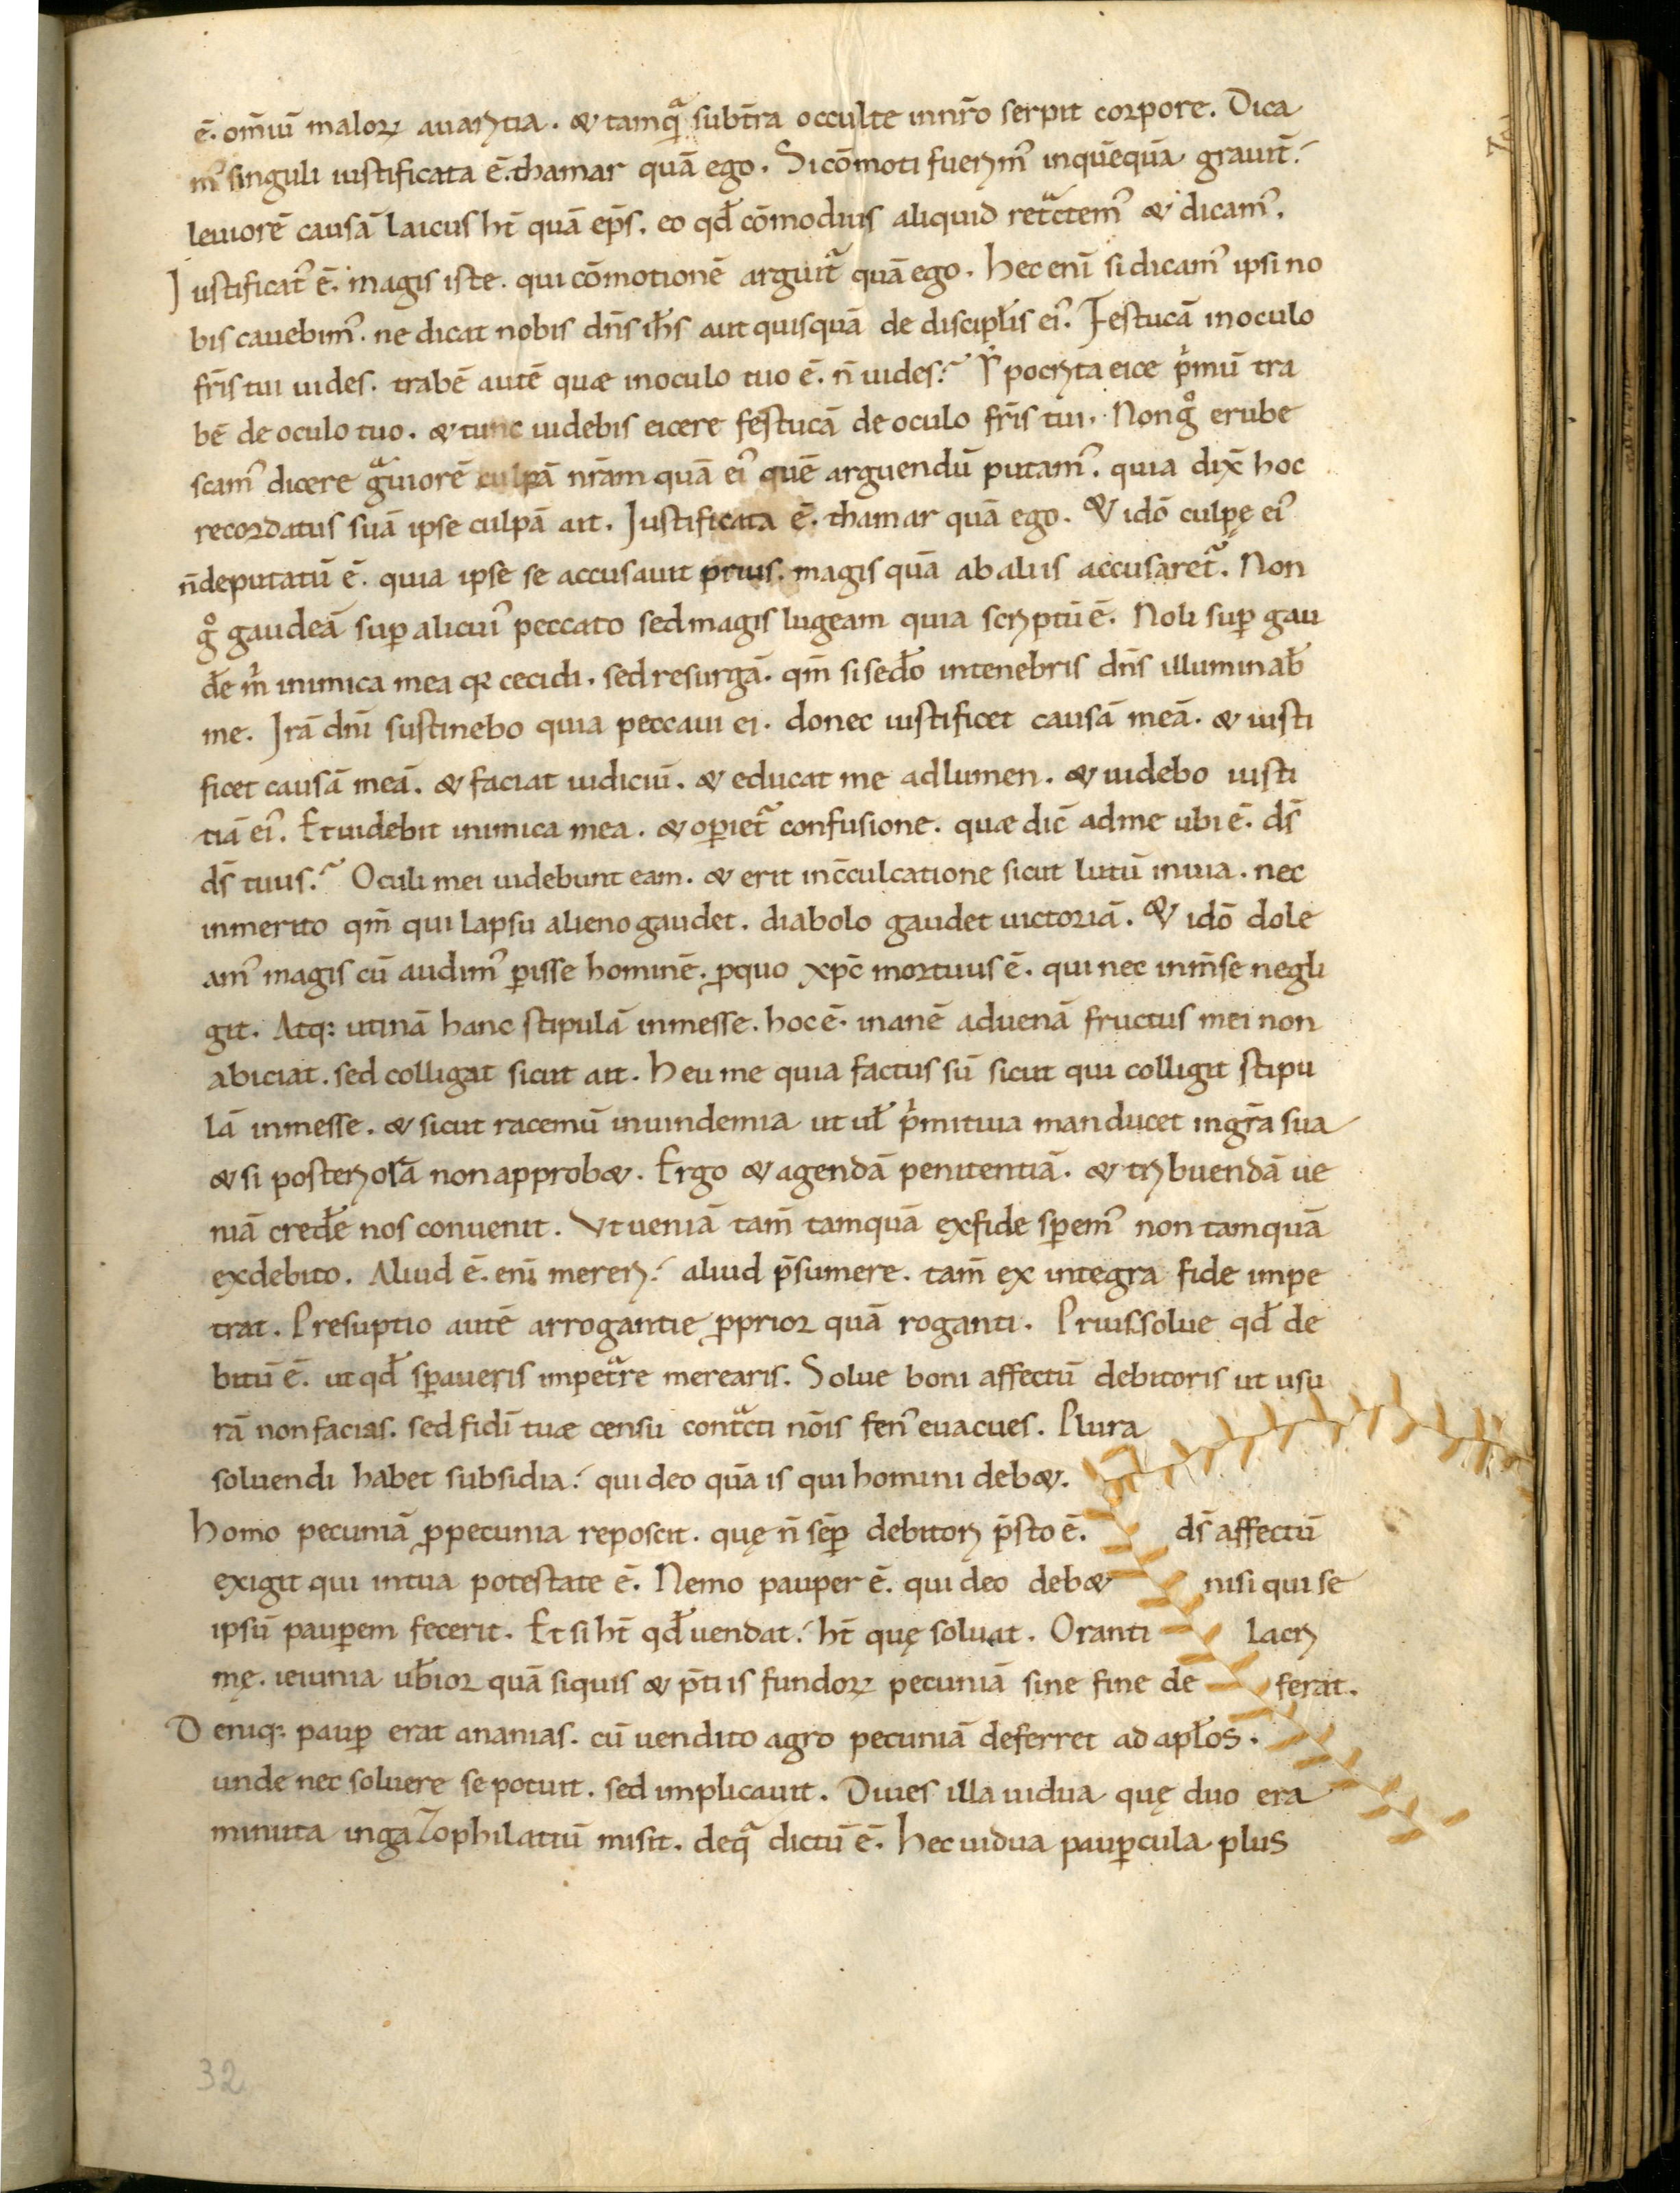 ē. om̄iū malorꝝ auaritia. & tamqͣ subt̄ra occulte innr̄o serpit corpore. Dica
mꝰ singuli iustificata ē. thamar quā ego. Si cōmoti fuerimꝰ inquēquā grauit̄.
leuiorē causā laicus ht̄ quā ep̄s. eo qđ cōmodius aliquid retͣctemꝰ & dicamꝰ.
Iustificatꝰ ē. magis iste. qui cōmotionē arguitᷣ quā ego. Hec enī si dicamꝰ ipsi no
bis cauebimꝰ. ne dicat nobis dn̄s ih̄s aut quisquā de discipłis eiꝰ. Festucā inoculo
fr̄is tui uides. trabē autē quæ inoculo tuo ē. n̄ uides? Ypocrita eice pͥmū tra
bē de oculo tuo. & tunc uidebis eicere festucā de oculo fr̄is tui. Non gͦ erube
scamꝰ dicere gͣuiorē culpā nr̄am quā eiꝰ quē arguendū putamꝰ. quia dix̄ hoc
recordatus suā ipse culpā ait. Iustificata ē. thamar quā ego. & idō culpę eiꝰ
n̄deputatū ē. quia ipse se accusauit prius. magis quā ab aliis accusaretᷣ. Non
gͦ gaudeā suꝑ alicuiꝰ peccato sed magis lugeam quia scriptū ē. Noli suꝑ gau
đe mͥ inimica mea qꝛ cecidi. sed resurgā. qm̄ si seđo intenebris dn̄s illuminab̄
me. Irā dnī sustinebo quia peccaui ei. donec iustificet causā meā. & iusti
ficet causā meā. & faciat iudiciū. & educat me adlumen. & uidebo iusti
tiā eiꝰ. Et uidebit inimica mea. & oꝑietᷣ confusione. quæ dic̄ adme ubi ē. dš
dš tuus? Oculi mei uidebunt eam. & erit inc̄culcatione sicut lutū inuia. nec
inmerito qm̄ qui lapsu alieno gaudet. diabolo gaudet uictoriā. & idō dole
amꝰ magis cū audimꝰ ꝑisse hominē. ꝓquo xpc̄ mortuus ē. qui nec inm̄se negli
git. Atqꝫ utinā hanc stipulā inmesse. hoc ē. inanē aduenā fructus mei non
abiciat. sed colligat sicut ait. Heu me quia factus sū sicut qui colligit stipu
lā inmesse. & sicut racemū inuindemia ut uł pͥmitiua manducet ingr̄a sua
& si posteriorā non approb&. Ergo & agendā penitentiā. & tribuendā ue
niā cređe nos conuenit. Vt ueniā tam̄ tamquā exfide sꝑemꝰ non tamquā
exdebito. Aliud ē. enī mereri. aliud p̄sumere. tam̄ ex integra fide impe
trat. Presuptio autē arrogantie ꝓprior quā roganti. Prius solue qđ de
bitū ē. ut qđ sꝑaueris impetͣre merearis. Solue boni affectū debitoris ut usu
rā non facias. sed fidī tuæ censu contͣcti nōis fenꝰ euacues. Plura
soluendi habet subsidia. qui deo quā is qui homini deb&.
Homo pecuniā ꝓpecunia reposcit. quę n̄ sēꝑ debitori p̄sto ē. dš affectū
exigit qui intua potestate ē. Nemo pauper ē. qui deo deb& nisi qui se
ipsū pauꝑem fecerit. Et si ht̄ qđ uendat. ht̄ quę soluat. Oranti lacri
mę. ieiunia ub̄ior quā siquis & p̄tiis fundorꝝ pecuniā sine fine de ferat.
Deniqꝫ pauꝑ erat ananias. cū uendito agro pecuniā deferret ad apłos.
unde nec soluere se potuit. sed implicauit. Diues illa uidua quę duo era
minuta ingazophilatiū misit. deqͣ dictū ē. Hec uidua pauꝑcula plus
32